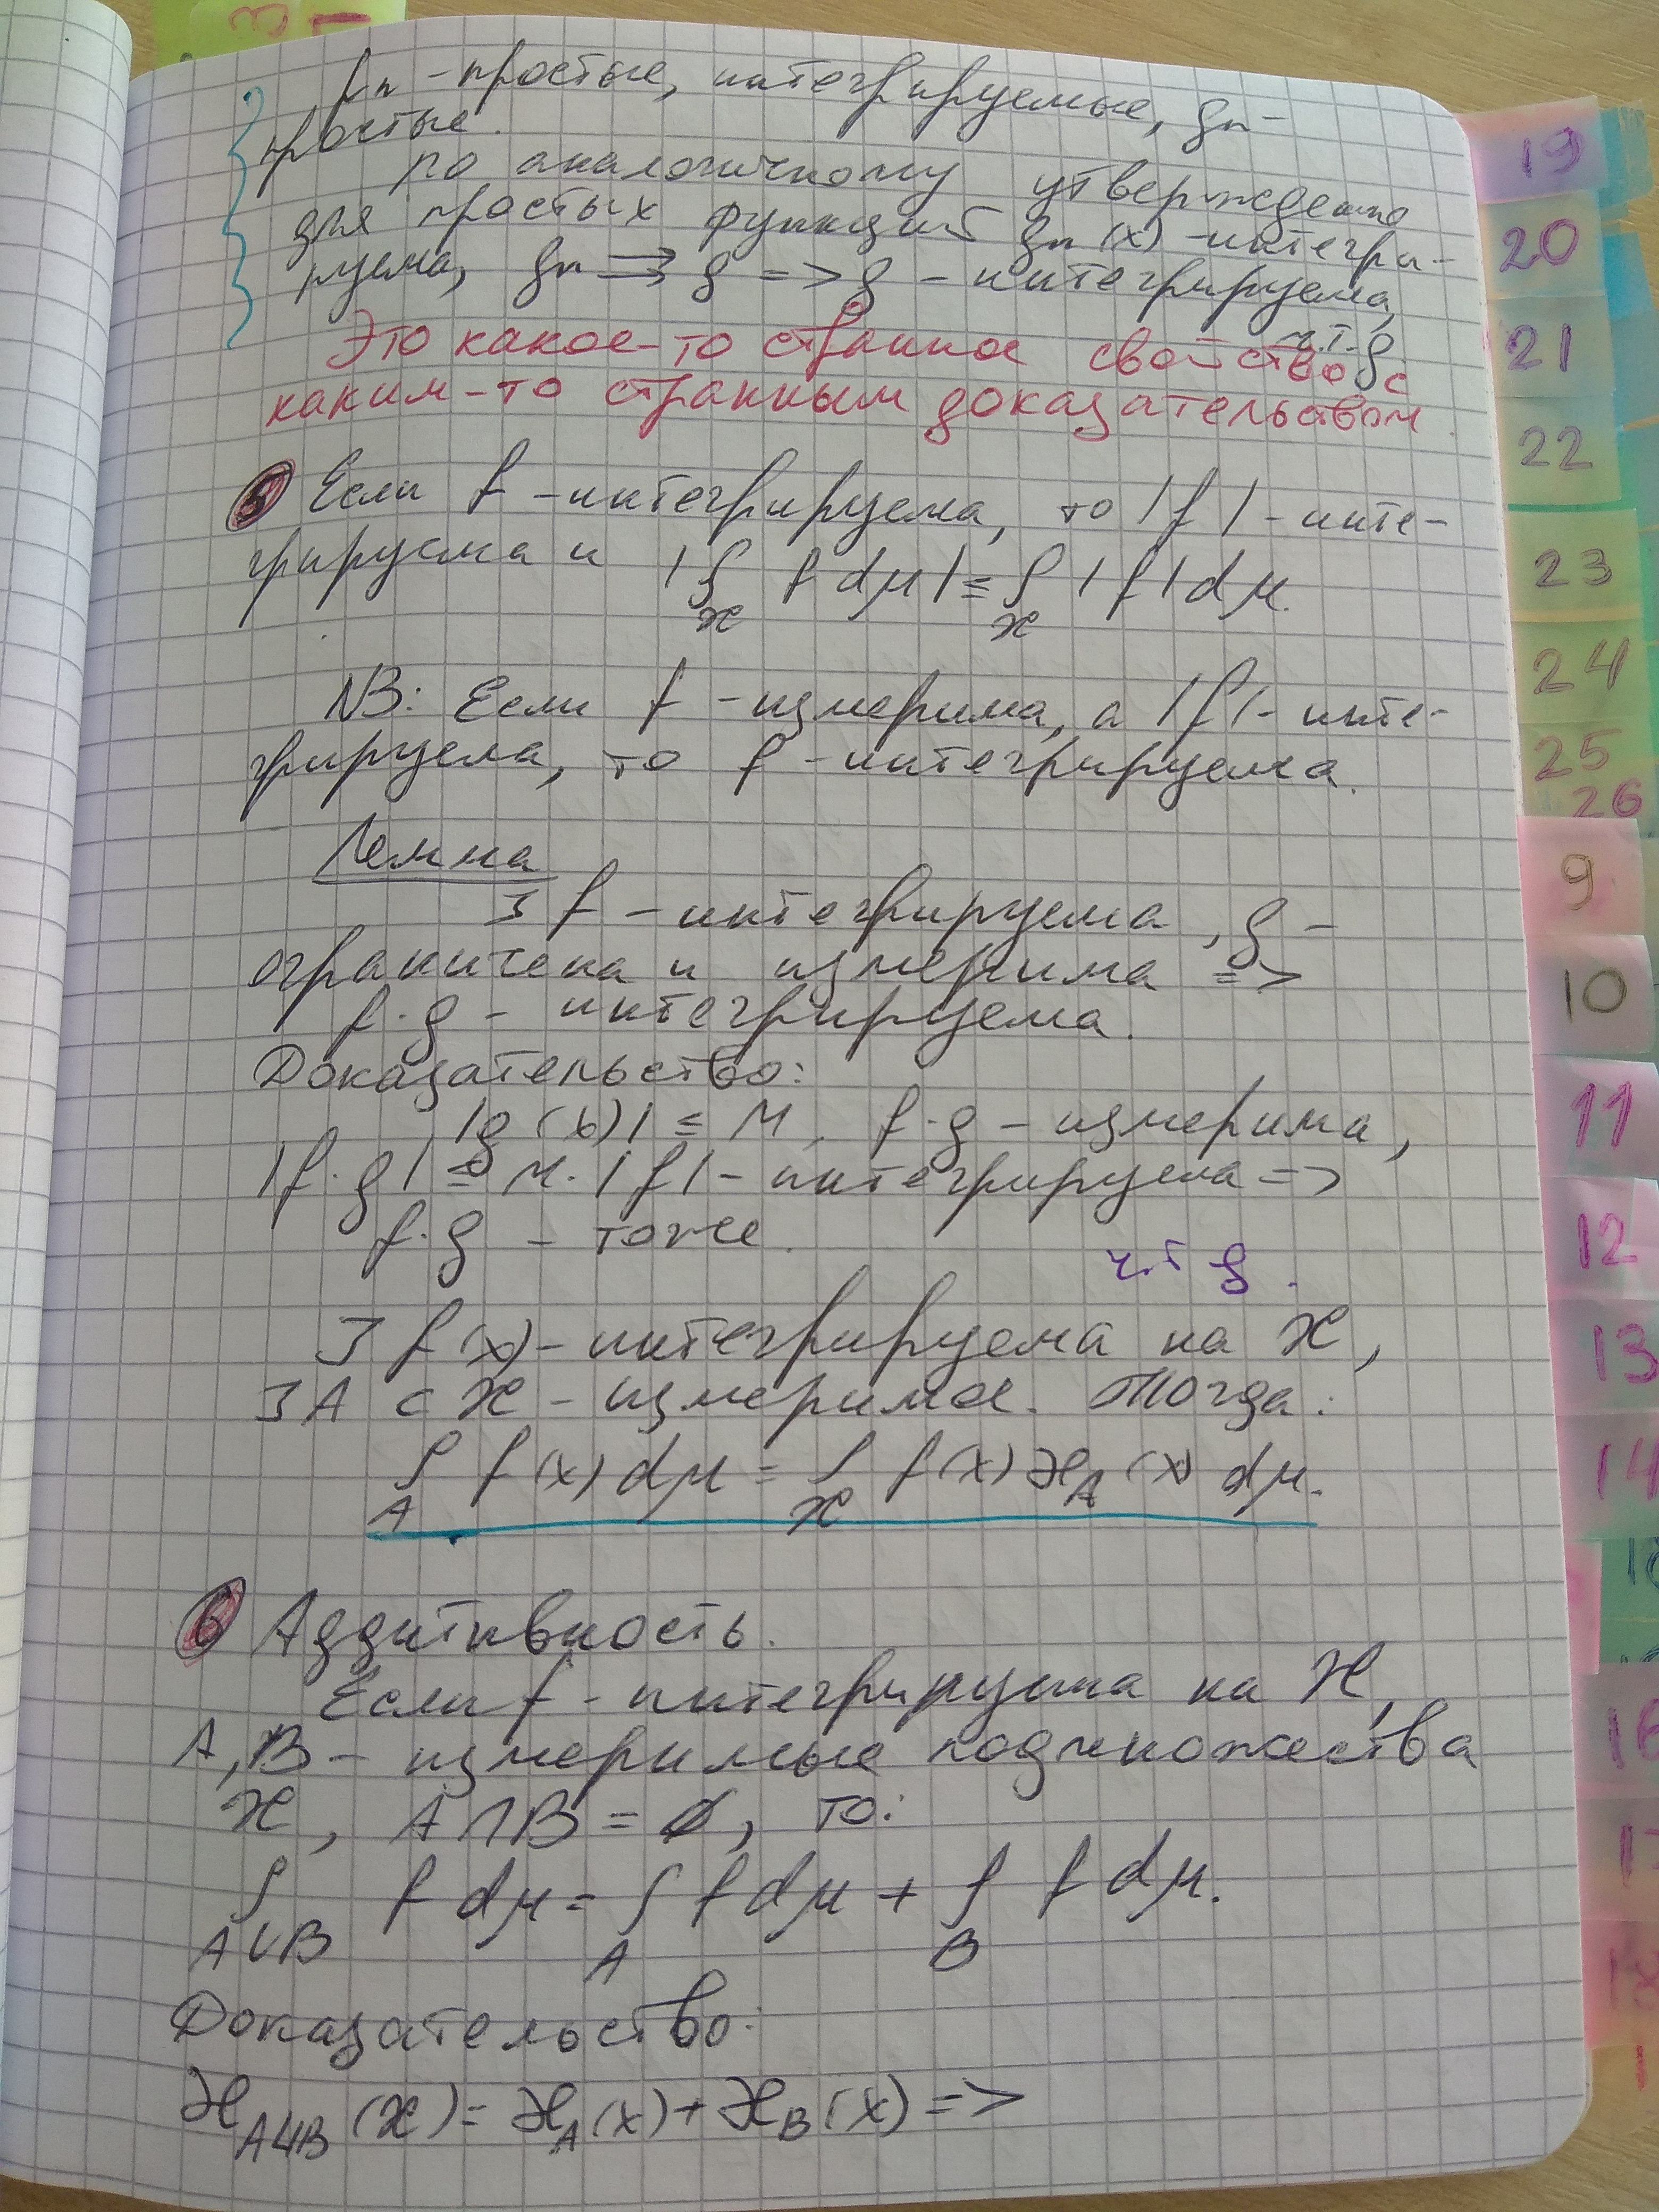 fn - простые, интегрируемые, gn -
простые.
по аналогичному утверждению
для простых функций gn(x) - интегри-
руема, gn ⇉ g => g - интегрируема,
ч.т.д
Это какое-то странное свойство с
каким-то странным доказательством
5 Если f - интегрируема, то |f| - инте-
грируема и |∫ f dμ| ≤ ∫ |f| dμ.
X X
NB: Если f - измерима, а |f| - инте-
грируема, то f - интегрируема.
Лемма
] f - интегрируема, g -
ограничена и измерима =>
f·g - интегрируема.
Доказательство:
|g(x)| ≤ M, f·g - измерима,
|f·g| ≤ M·|f| - интегрируема =>
f·g - тоже.
ч.т.д.
] f(x) - интегрируема на X,
] A ⊂ X - измеримое. Тогда:
∫ f(x) dμ = ∫ f(x) χA(x) dμ.
A X
6 Аддитивность.
Если f - интегрируема на X,
A, B - измеримые подмножества
X, A∩B = ∅, то:
∫ f dμ = ∫ f dμ + ∫ f dμ.
A∪B A B
Доказательство:
χA⊔B(x) = χA(x) + χB(x) =>
19
20
21
22
23
24
25
26
9
10
11
12
13
14
16